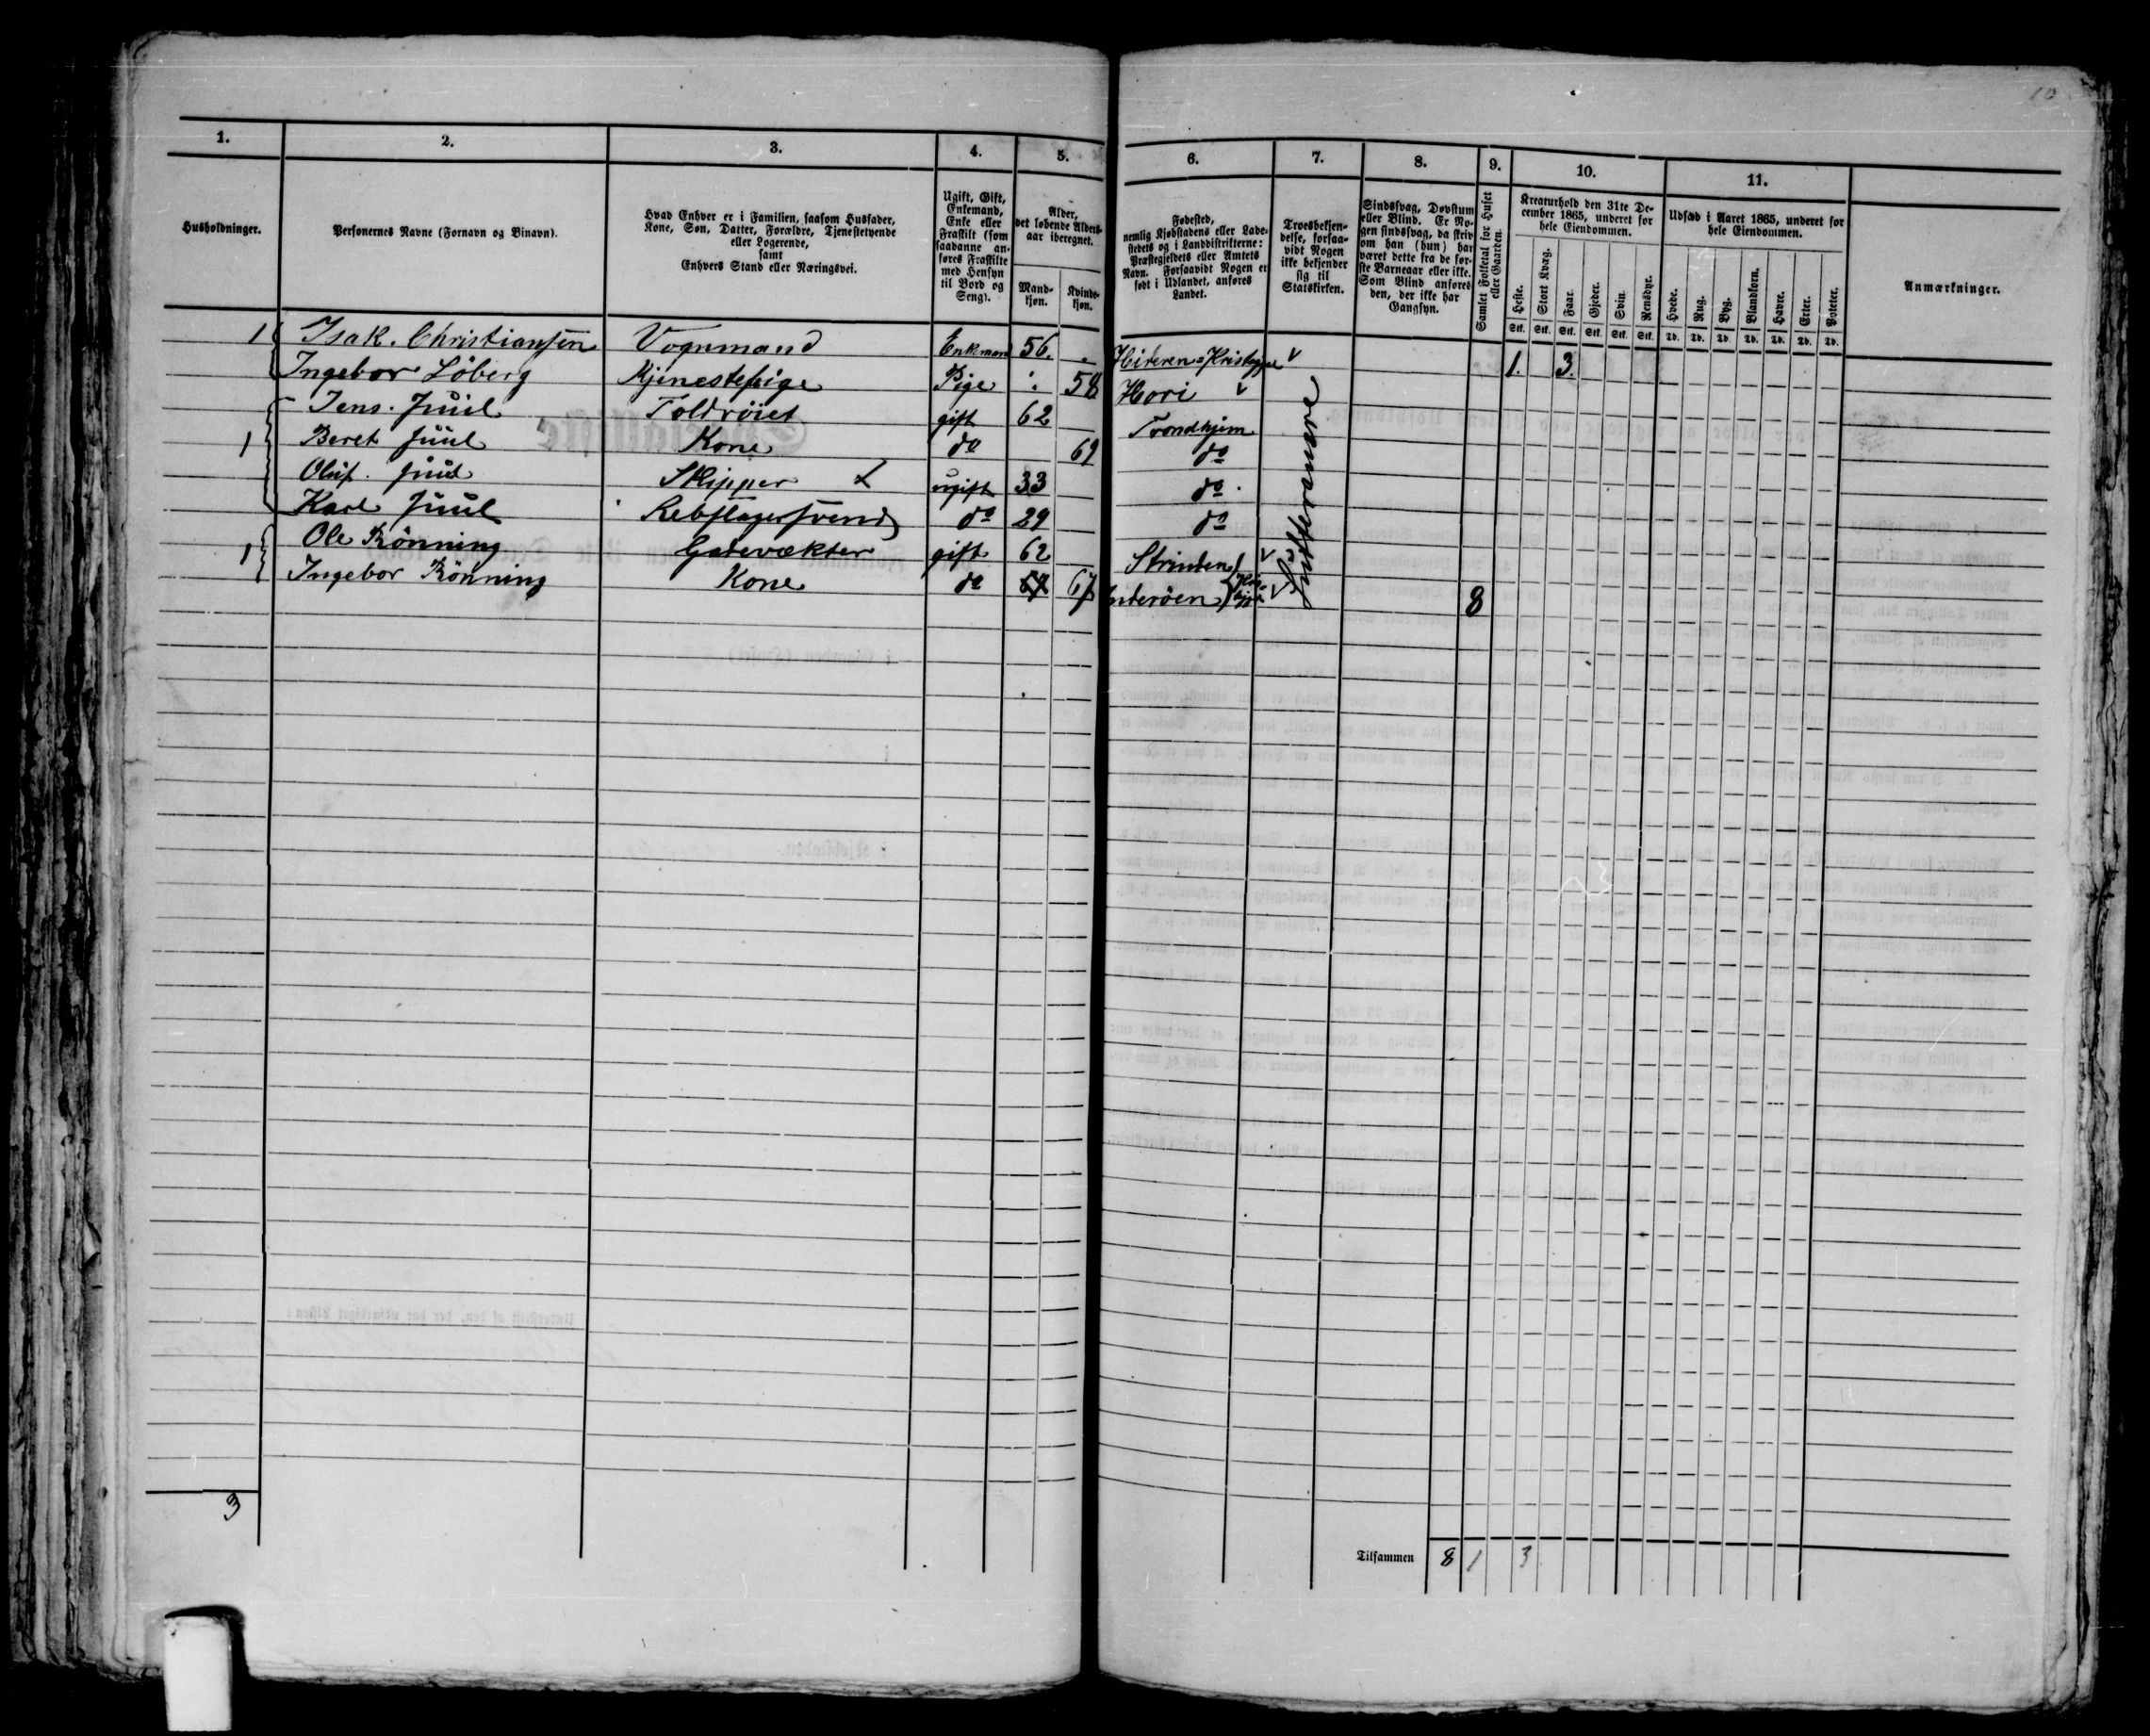 10
1. 2. 3. 4. 5. 6. 7. 8. 9. 10. 11.
Husholdninger.
Personernes Navne (Fornavn og Binavn).
Hvad Enhver er i Familien, saasom Husfader,
Kone, Søn, Datter, Forældre, Tjenestetyende
eller Logerende,
samt
Enhvers Stand eller Næringsvei.
Ugift, Gift,
Enkemand,
Enke eller
Fraskilt (som
saadanne an-
føres Fraskilte
med Hensyn
til Bord og
Seng).
Alder,
det løbende Alders-
aar iberegnet.
Mand-
kjøn.
Kvinde-
kjøn.
Fødested,
nemlig Kjøbstadens eller Lade-
stedets og i Landdistrikterne:
Præstegjeldets eller Amtets
Navn. Forsaavidt Nogen er
født i Udlandet, anføres
Landet.
Troesbekjen-
delse, forsaa-
vidt Nogen
ikke bekjender
sig til
Statskirken.
Sindssvag, Døvstum
eller Blind. Er No-
gen sindssvag, da skriv
om han (hun) har
været dette fra de før-
ste Barneaar eller ikke.
Som Blind anføres
den, der ikke har
Gangsyn.
Samlet Folketal for Huset
eller Gaarden.
Kreaturhold den 31te De-
cember 1865, underet for
hele Eiendommen.
Heste. Stort Kvæg. Faar. Gjeder. Svin. Rensdyr.
Stk. Stk. Stk. Stk. Stk. Stk.
Udsæd i Aaret 1865, underet for
hele Eiendommen.
Hvede. Rug. Byg. Blandkorn. Havre. Erter. Poteter.
Td. Td. Td. Td. Td. Td. Td.
Anmærkninger.
1 Isak. Christiansen Vognmand Enkemand 56. 1. 3.
Ingebor Löberg Tjenestepige Pige 58
Jens. Juul gift 62 Trondhjem
1 Beret Juul Kone do 69 do
Oluf. Juul Skipper ugift 33 do
Karl Juul Rebslagersvend do 29 do
1 Ole Rönning Gatevækter gift 62 Strinden
Ingebor Rönning Kone do 67 Inderöen 8
3
Tilsammen 8 1 3